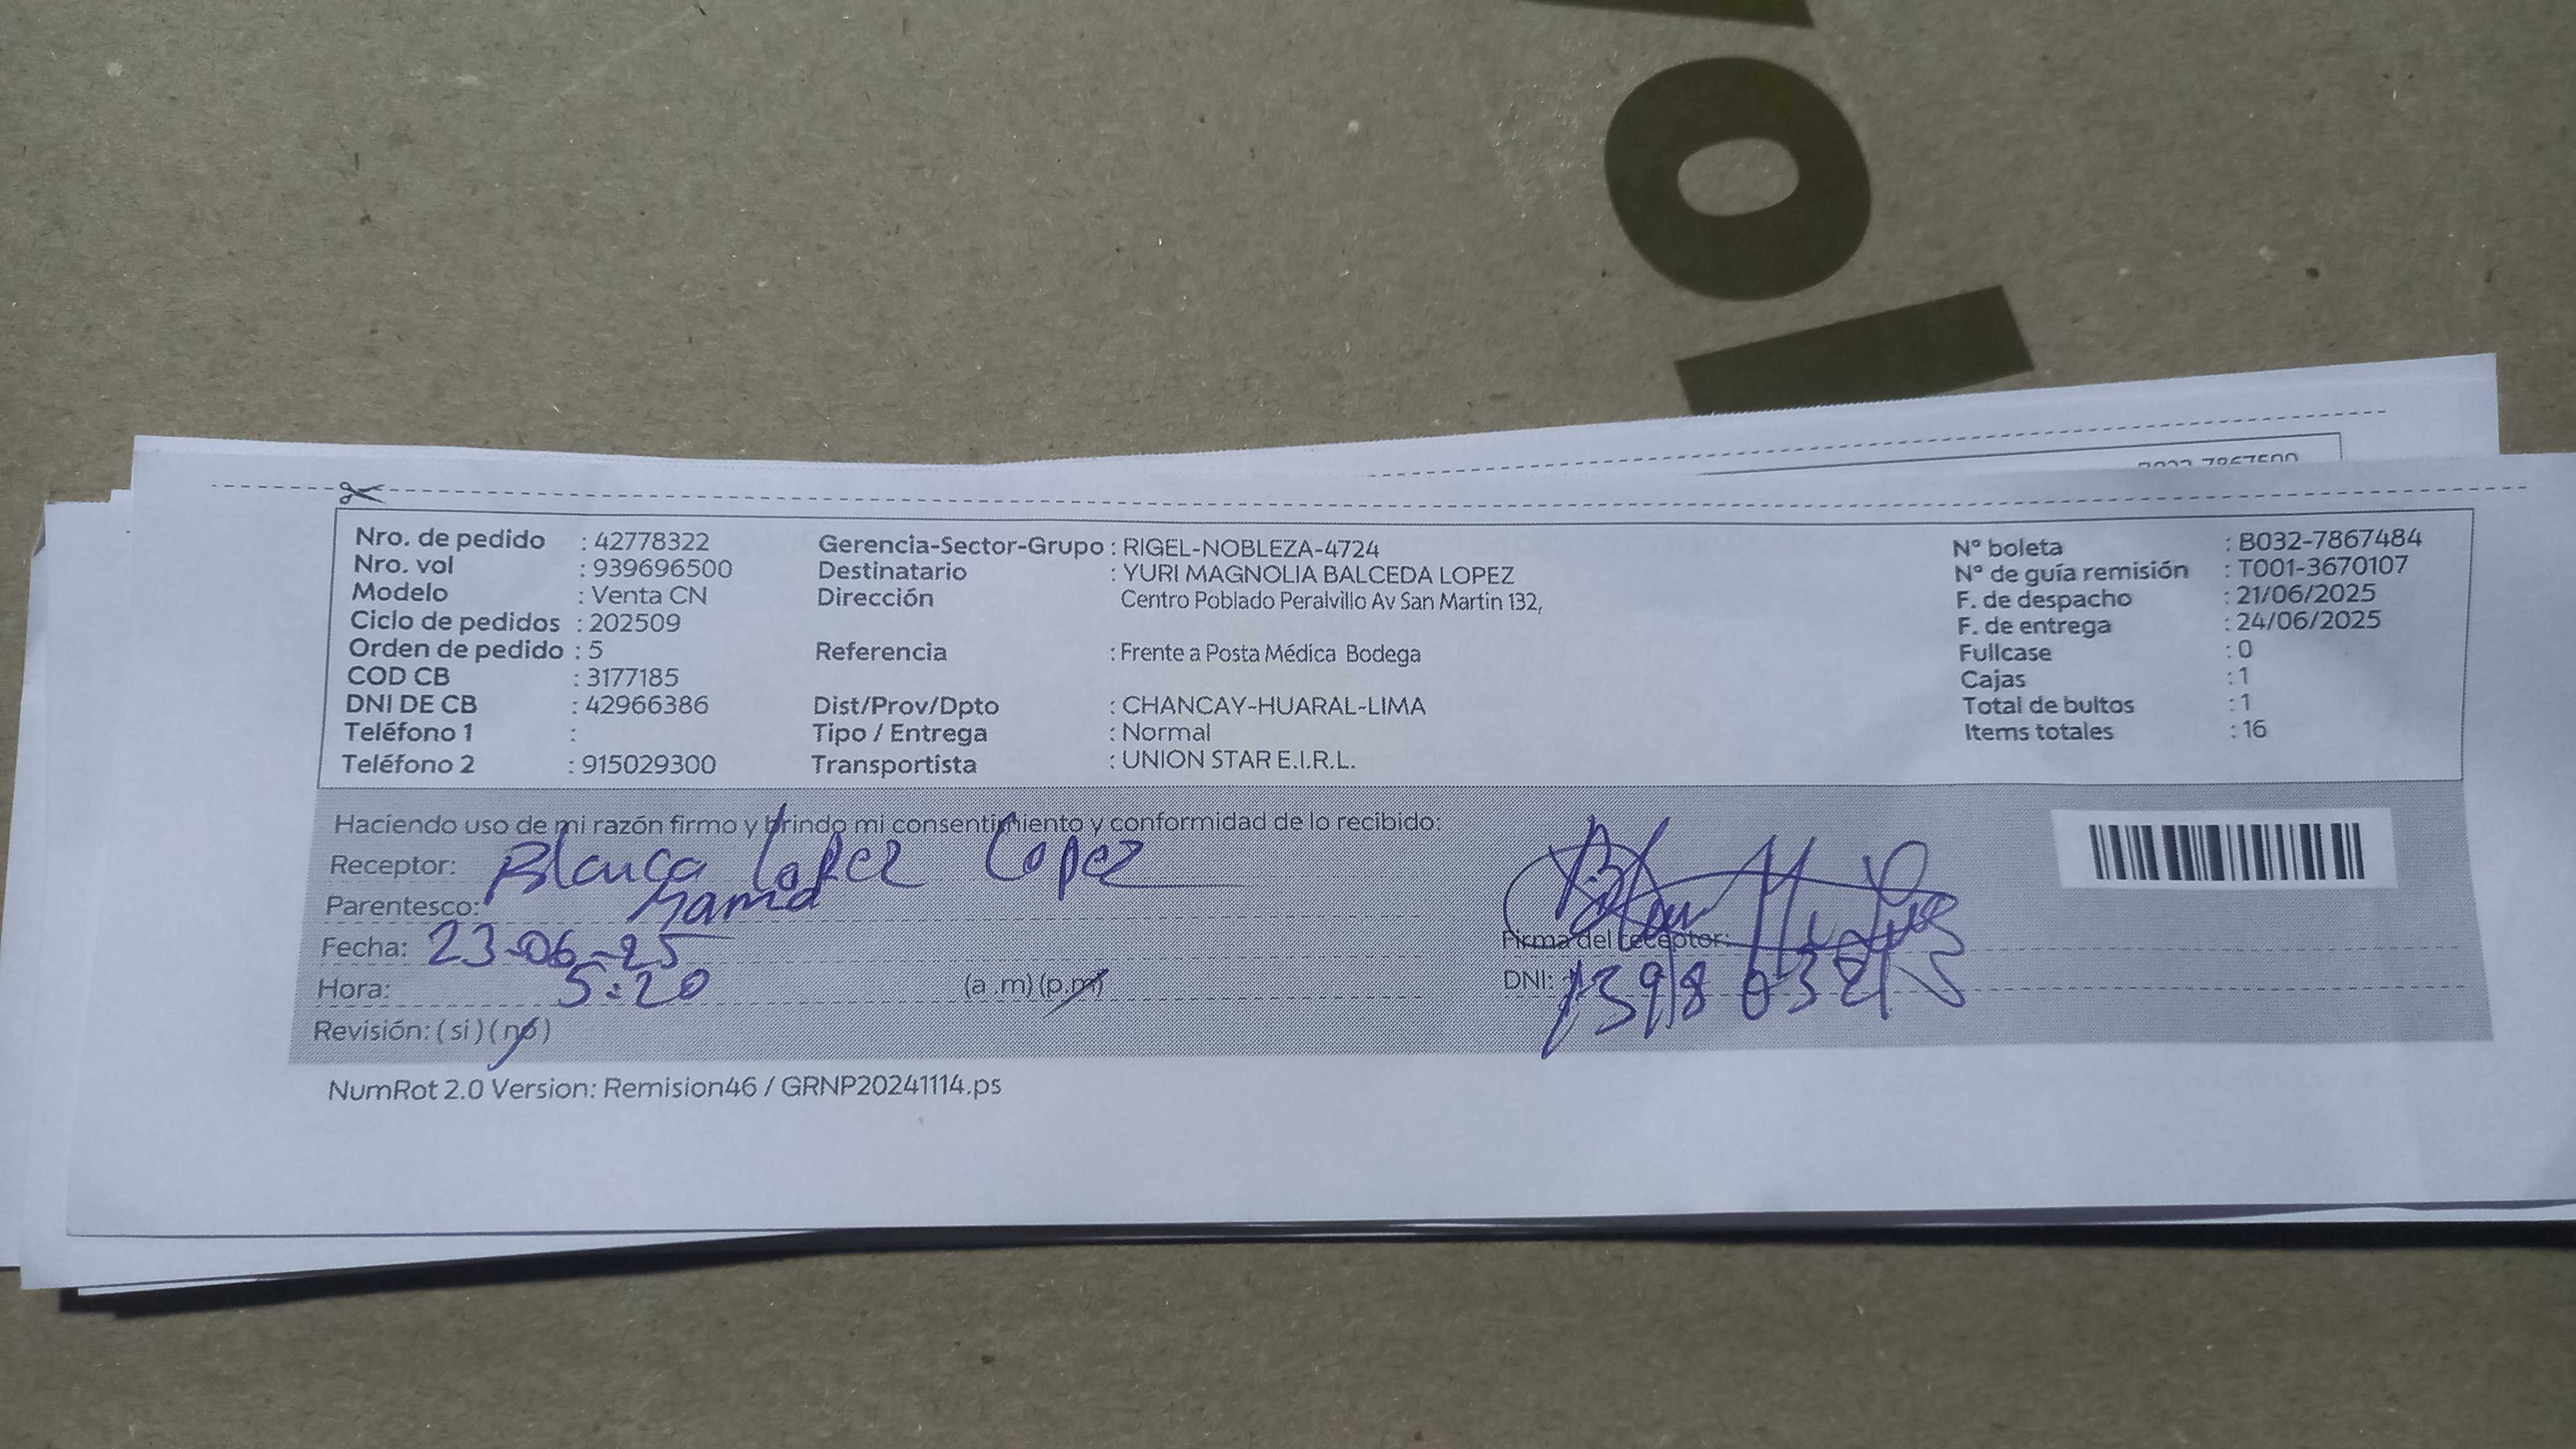 Nro. de pedido : 42778322
Nro. vol : 939696500
Modelo : Venta CN
Ciclo de pedidos : 202509
Orden de pedido : 5
COD CB : 3177185
DNI DE CB : 42966386
Teléfono 1 :
Teléfono 2 : 915029300
Gerencia-Sector-Grupo : RIGEL-NOBLEZA-4724
Destinatario : YURI MAGNOLIA BALCEDA LOPEZ
Dirección Centro Poblado Peralvillo Av San Martin 132,
Referencia : Frente a Posta Médica Bodega
Dist/Prov/Dpto : CHANCAY-HUARAL-LIMA
Tipo / Entrega : Normal
Transportista : UNION STAR E.I.R.L.
N° boleta : B032-7867484
N° de guía remisión : T001-3670107
F. de despacho : 21/06/2025
F. de entrega : 24/06/2025
Fullcase : 0
Cajas : 1
Total de bultos : 1
Items totales : 16
Haciendo uso de mi razón firmo y brindo mi consentimiento y conformidad de lo recibido:
Receptor: Blanca Lopez Lopez
Parentesco: Mama
Fecha: 23-06-25
Hora: 5:20 (a .m) (p.m)
Revisión: ( si ) ( no )
Firma del receptor:
DNI:
NumRot 2.0 Version: Remision46 / GRNP20241114.ps